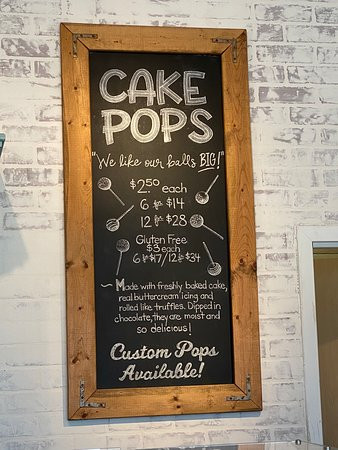 CAKE
POPS
"We like our balls BIG!"
$2.50 each
6 for $14
12 for $28
Gluten Free
$3 each
6 for $17/12 for $34
~ Made with freshly baked cake,
real buttercream icing and
rolled like truffles. Dipped in
chocolate, they are moist and
so delicious!
Custom Pops
Available!